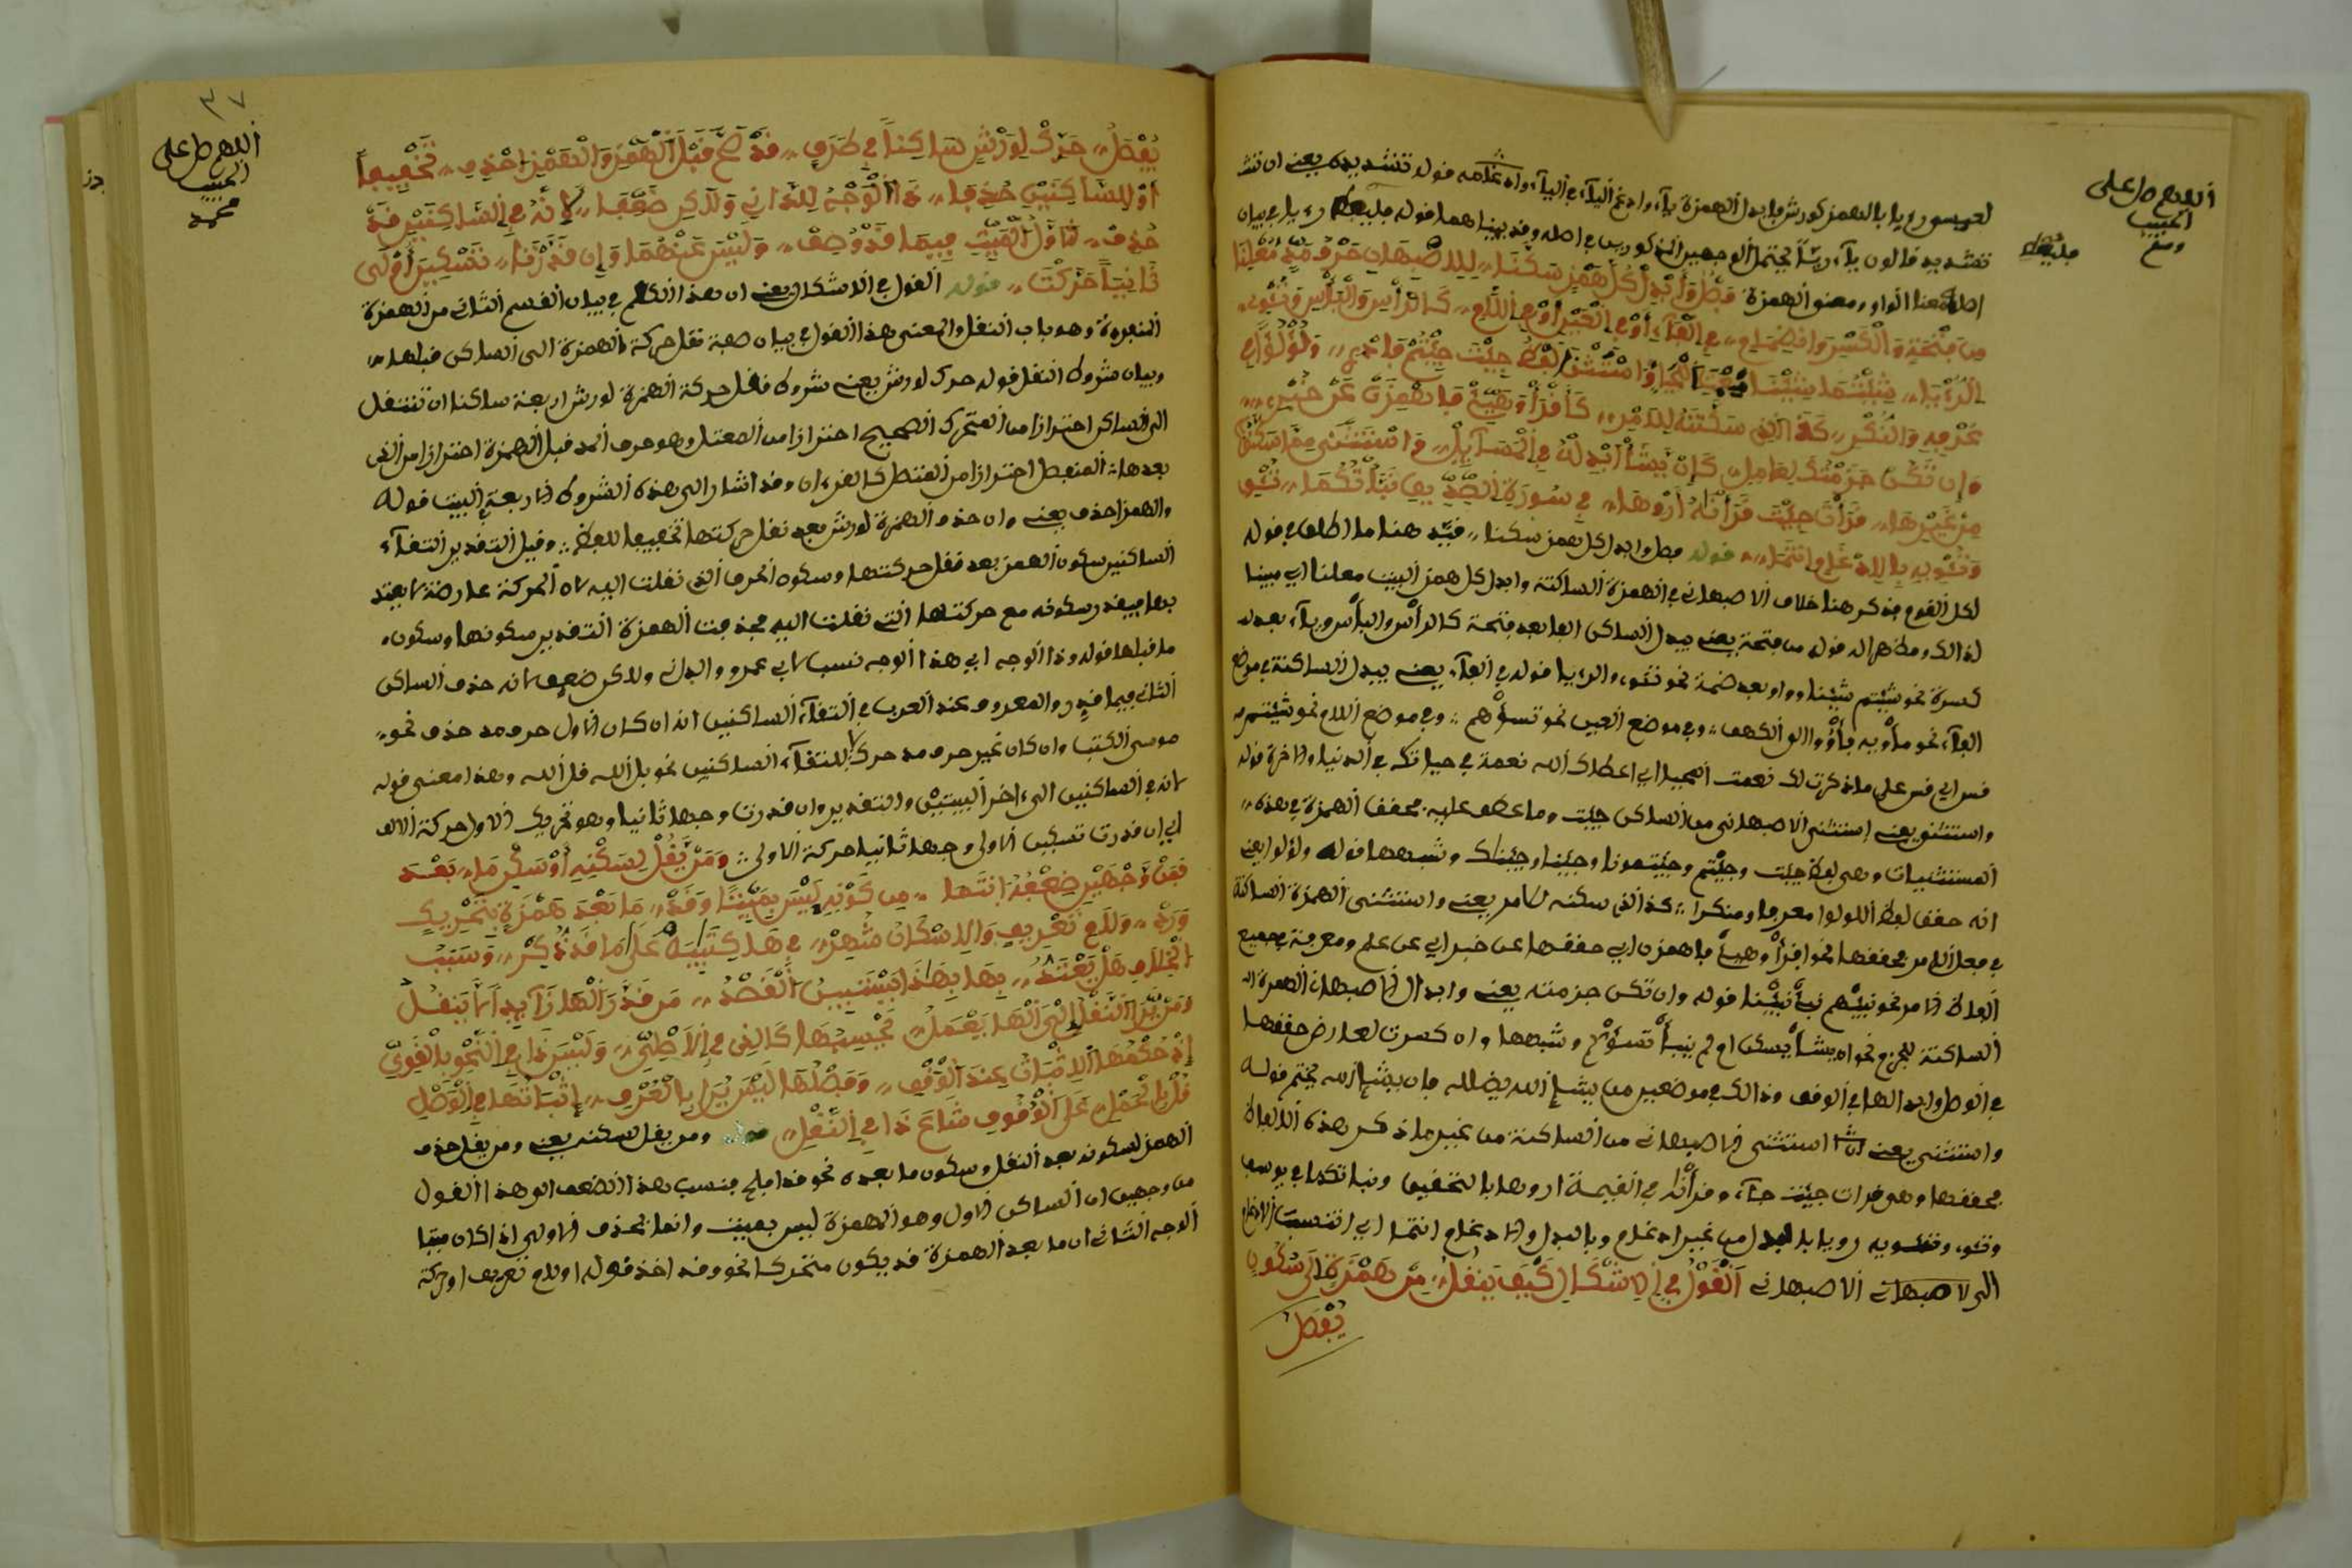 اللهم صل على
الحبيب
لعيسى ورءيا بالهمز كورش فابدل الهمزة ياء وادغم الياء في الياء قوله تشديده يعني ان
تشديد قالون ياء ريا يحتمل الوجهين المذكورين في اصله وقد بينا هما قوله
اصله معنا الواو ومعنو الهمزة فصل وابدل كل همز سكنا للاصبهان حرف مد معلنا
من فتحة والكسر وانضمام في الفاء او في العين او في اللام كالراس والباس وتئوي
الرءيا شئتما شئنا لفظ جئت جئتم فادر ولؤلؤا في
عرفه والنكر كذا الذي سكنته للامر كاقرأ وهيئ فاهمزن عن خبر
وان تكن جزمته لعامل كان يشأ ابدله في المسايل واستثنى مما سكنا
من غيرها قرأت جئت قرأناه اروها في سورة الصديق نبأتكما تئوي
وتئويه بالادغام انتما قوله فصل وابدل كل همز سكنا قيد هنا ما اطلق في قوله
لكل القوم فذكر هنا خلاف الاصبهاني في الهمزة الساكنة وابدل كل همز البيت معلنا اي مبينا
لذالك ومظهرا له قوله من فتحة يعني يبدل الساكن الفا بعد فتحة كالراس والباس وياء بعد
كسرة نحو شئتم شئنا وواو بعد ضمة نحو تئوي والرءيا قوله في الفاء يعني يبدل الساكنة في موضع
الفاء نحو مأويه فأووا الى الكهف وفي موضع العين نحو تسؤهم وفي موضع اللام نحو شئتم
قس اي قس على ما ذكرت لك نعمت الجميل اي اعطاك الله نعمة في حياتك في الدنيا والاخرة قوله
واستثنو يعني استثنى الاصبهاني من الساكن جئت وما عطف عليه محقق الهمزة في هذه
المستثنيات وهي لفظ جئت وجئتم وجئتمونا وجئنا وجئناك وشبهها قوله ولؤلؤا يعني
انه حقق لفظ اللؤلؤا معرفا ومنكرا كذا الذي سكنه للامر يعني واستثنى الهمزة الساكنة
في فعل الامر محققها نحو اقرأ وهيئ فاهمزن اي حققها عن خبر اي عن علم ومعرفة بجميع
الفاظ الامر نحو نبئهم نبأ نبئنا قوله وان تكن جزمته يعني وابدل الاصبهان الهمزة
الساكنة للجزم نحو ان يشأ يسكن او لم ينبأ تسؤكم وشبهها وان كسرت لعارض حققها
في الوصل وابدلها في الوقف وذالك في موضعين من يشإ الله يضلله فان يشإ الله يختم قوله
واستثنى يعني استثنى الاصبهاني من الساكنة من غير ما ذكر هذه الالفاظ
محققها وهي قرات جئت جاء وقرأناه في القيمة اروها بالتخفيف ونباتكما في يوسف
وتئوي وتئويه رويا بالبدل من غير ادغام وبالبدل والادغام انتما اي انتسبت الادغام
الى لاصبهاني الاصبهاني القول في الاشكال كيف ينقل من همزة الى سكون
يفصل
٣٧
اللهم صل على
الحبيب
محمد
يفصل حرك لورش ساكنا في طرف قد صح قبل الهمز والهمز احذف تخفيفا
او للساكنين حذفا ذا الوجه للداني ولاكن ضعفا لانه في الساكنين قد
حذف ثاول القيت فيما قد وصف وليس عنهما وان قدرتا تسكين اولى
ثانيا حركتا قوله القول في الاشكال يعني ان هذا الكلام في بيان القسم الثاني من الهمزة
المنفردة وهو باب النقل والمعنى هذا القول في بيان صفة نقل حركة الهمزة الى الساكن قبلها
وبيان شروط النقل قوله حرك لورش يعني شروط نقل حركة الهمزة لورش اربعة ساكنا ان تنتقل
الى الساكن احترازا من المتحرك الصحيح احترازا من المعتل وهو حرف المد قبل الهمزة احترازا من التي
بعدها المنفصل احترازا من المتصل كالقرءان وقد اشار الى هذه الشروط الاربعة البيت قوله
والهمز احذف يعني وان حذف الهمزة لورش بعد نقل حركتها تخفيفا للفظ وقيل التقدير التقاء
الساكنين سكون الهمز بعد نقل حركتها وسكون الحرف الذي نقلت اليه لان الحركة عارضة لا يعتد
بها فيقدر سكونه مع حركتها التي نقلت اليه فحذفت الهمزة التقدير سكونها وسكون
ما قبلها قوله وذا الوجه اي هذا الوجه نسب لابي عمرو والداني ولاكن ضعف لانه حذف الساكن
الثاني فيما قدر والمعروف عند العرب في التقاء الساكنين انه ان كان الاول حرف مد حذف نحو
موسى الكتب وان كان غير حرف مد حرك لالتقاء الساكنين نحو بل الله قل الله وهذا معنى قوله
لانه في الساكنين الى ءاخر البيتين والتقدير وان قدرت وجها ثانيا وهو تحريك الاول حركة الالف
اي ان قدرت تسكين الاولى وجها ثانيا حركة الاولى ومن يقل لسكنه او سكن ما بعد
فمن وجهين ضعفه انتها من كونه ليس بميتا وقد ما بعد همزة بتحريك
ورد ولام تعريف والاسكان شهر في ها كتبيه على ما قد ذكر وسبب
الخلاف هل يعتد بها بهذا يستبين القصد من قدر الها زايدا لا ينقل
ومن يرا النقل الى الها يعمل تجسبها كالذي في الاصلي وليس ذا في النحو بالقوي
اذ حكمها الاثبات عند الوقف ووصلها ليس يرا بالعرف اثباتها في الوصل
قل بالحمل على الوقوف شاع ذا في النقل ومن يقل لسكنه يعني ومن يقل حذف
الهمز لسكونه بعد النقل وسكون ما بعده نحو قد افلح فنسب هذا الضعف الى هذا القول
من وجهين ان الساكن الاول وهو الهمزة ليس بميت وانما يحذف الاولى اذا كان ميتا
الوجه الثاني ان ما بعد الهمزة قد يكون متحركا نحو وقد اخذ قوله او لام تعريف او حركة